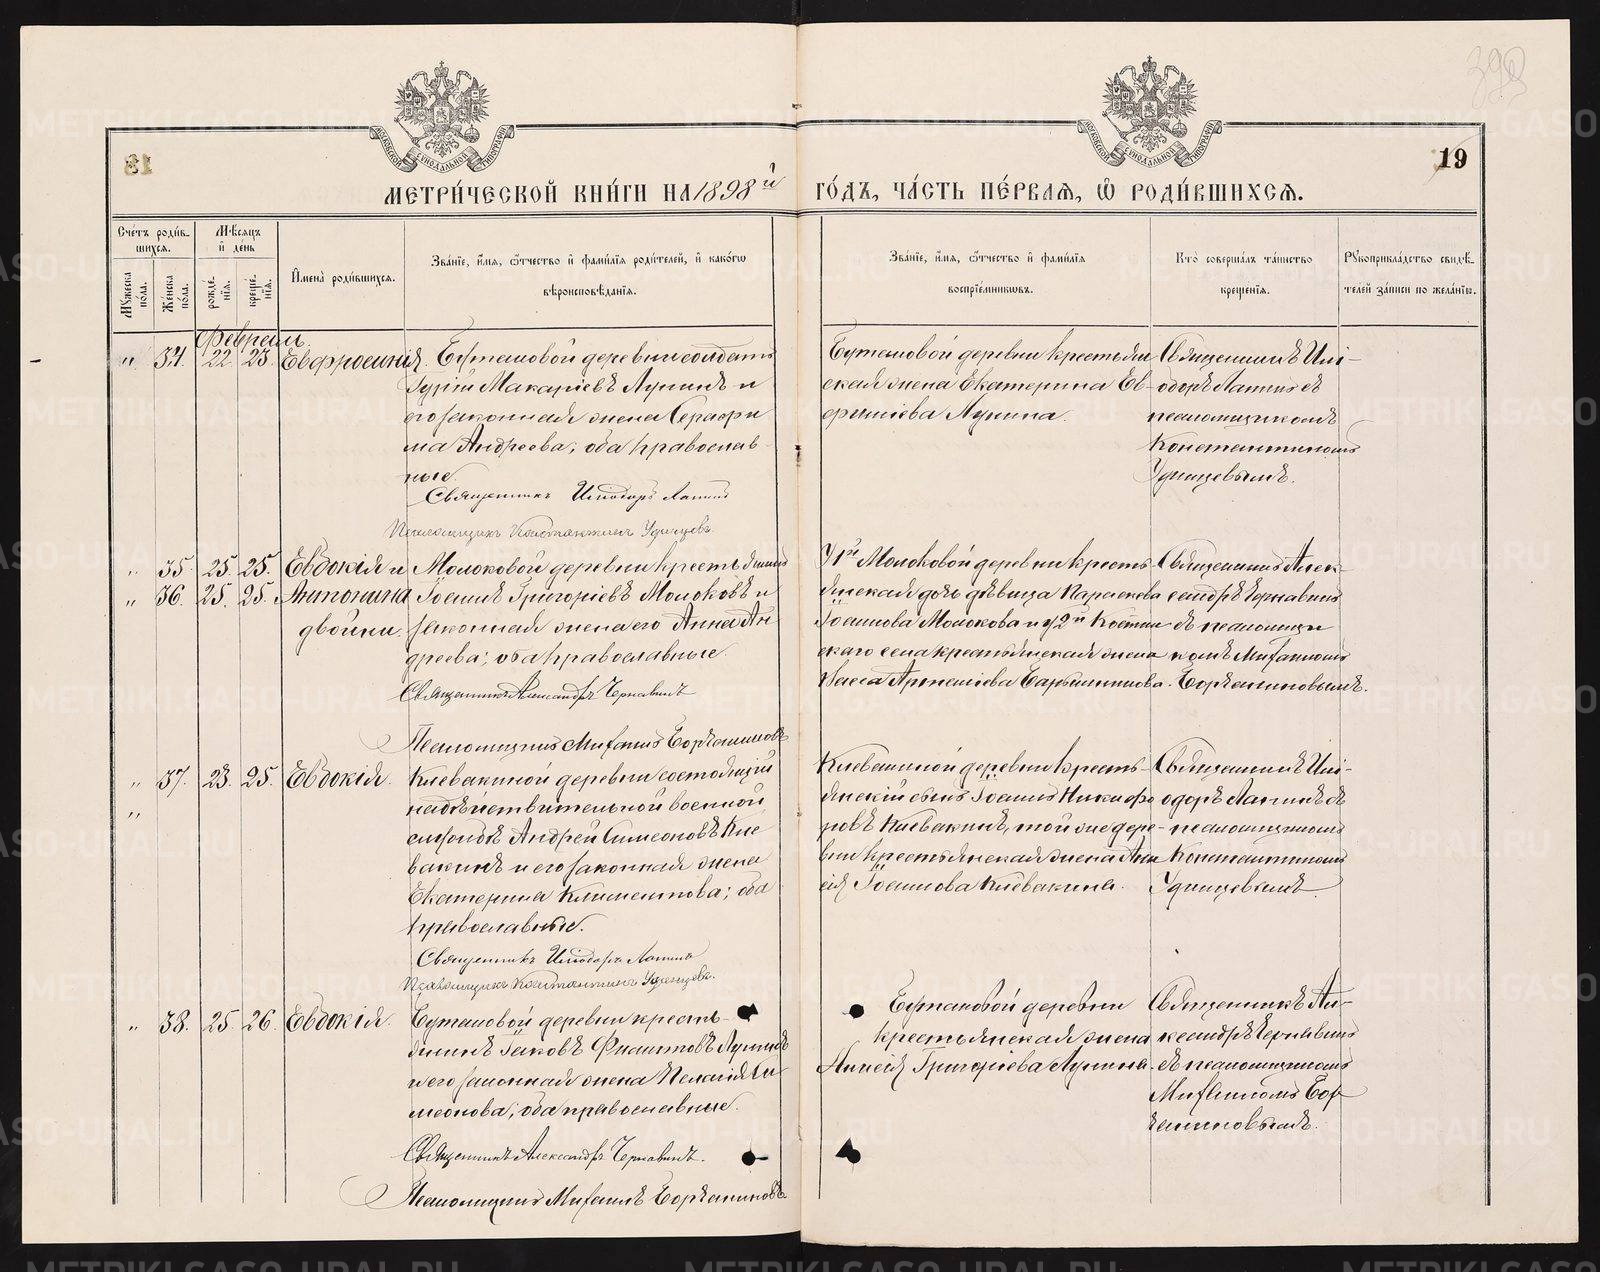 392
19
МЕТРИ́ЧЕСКОЙ КНИ́ГИ НА 1898й ГО́ДЪ, ЧА́СТЬ ПЕ́РВАѦ, Ѡ҆ РОДИ́ВШИХСѦ.
Сче́тъ роди́вшихся.
Мѣ́сяцъ и де́нь
Имена̀ роди́вшихся.
Зва́нїе, и́мя, ѻ҆́тчество и фами́лїя роди́телей, и како́гѡ вѣроисповѣ́данїя.
Зва́нїе, и́мя, ѻ҆́тчество и фами́лїя воспрїе́мникѡвъ.
Кто̀ соверша́лъ та́инство креще́нїя.
Рꙋкоприкла́дство свидѣ́телей за́писи по жела́нїю.
Мꙋ́жеска по́ла.
Же́нска по́ла.
рожде́нїя.
креще́нїя.
Февраль.
" 34. 22 23. Евфросинія. Бутаковой деревни солдатъ
Гурій Макаріевъ Лунинъ и
его законная жена Серафи
ма Андреева; оба православ-
ные.
Священникъ Иліодоръ Лапинъ
Псаломщикъ Константинъ Удинцевъ.
Бутаковой деревни крестьян
ская жена Екатерина Ев-
фиміева Лунина.
Священникъ Илі-
одоръ Лапинъ съ
псаломщикомъ
Константиномъ
Удинцевымъ.
" 35. 25. 25. Евдокія и Молоковой деревни крестьянинъ
" 36. 25. 25. Антонина Іоаннъ Григоріевъ Молоковъ и
двойни. законная жена его Анна Ан
дреева; оба православные.
Священникъ Александръ Чернавинъ
Псаломщикъ Михаилъ
У 1й Молоковой деревни кресть-
янская дочь дѣвица
Іоаннова Молокова и у 2й
скаго села крестьянская жена
Васса
Священникъ Алек-
сандръ Чернавинъ
съ псаломщи
комъ Михаиломъ
" 37. 23. 25. Евдокія. Клевакиной деревни состоящій
" на дѣйствительной военной
службѣ Андрей Симеоновъ Кле
вакинъ и его законная жена
Екатерина Климентова; оба
православные.
Священникъ Иліодоръ Лапинъ
Псаломщикъ Константинъ Удинцевъ.
Клевакиной деревни кресть-
янскій сынъ Іоаннъ Никифо
ровъ Клевакинъ, той же дере-
вни крестьянская жена Ани
сія Іоаннова Клевакина.
Священникъ Илі-
одоръ Лапинъ съ
псаломщикомъ
Константиномъ
Удинцевымъ
" 38. 25. 26. Евдокія. Бутаковой деревни кресть-
янинъ Іаковъ Филипповъ Лунинъ
и его законная жена Пелагія Си
меонова; оба православные.
Священникъ Александръ Чернавинъ.
Псаломщикъ Михаилъ
Бутаковой деревни
крестьянская жена
Анисія Григоріева Лунина.
Священникъ Ал-
ксандръ Чернавинъ
съ псаломщикомъ
Михаиломъ
METRIKI.GASO-URAL.RU